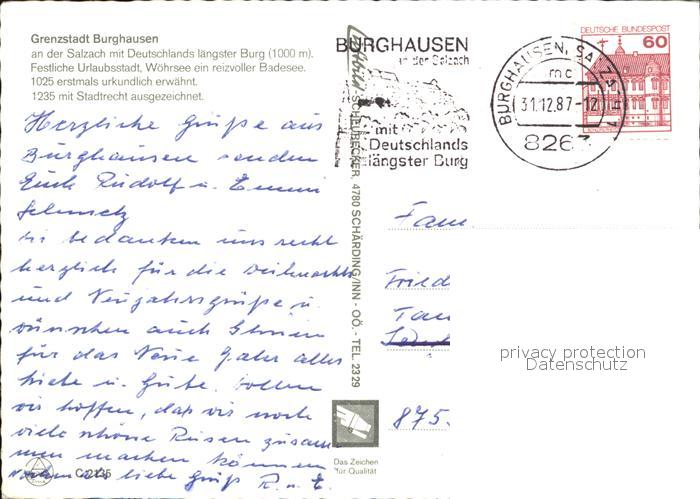 Grenzstadt Burghausen
an der Salzach mit Deutschlands längster Burg (1000 m).
Festliche Urlaubsstadt, Wöhrsee ein reizvoller Badesee.
1025 erstmals urkundlich erwähnt.
1235 mit Stadtrecht ausgezeichnet.
Herzliche Grüße aus
Burghausen senden
Euch Rudolf u. Emmi
Schmelz
Wir bedanken uns recht
herzlich für die Weihnachts
und Neujahrsgrüße u.
wünschen auch Ihnen
für das Neue Jahr alles
Liebe u. Gute. Wollen
wir hoffen, daß wir noch
viele schöne Reisen zusam
men machen können
Nochmals liebe Grüße R. u. E.
C 2135
SCHEUBECKER, 4780 SCHÄRDING/INN - OÖ. - TEL 2329
Das Zeichen
für Qualität
BURGHAUSEN
an der Salzach
mit
Deutschlands
längster Burg
BURGHAUSEN, SALZACH 1
mc
31.12.87-12
8263
DEUTSCHE BUNDESPOST
60
Fam.
Fried
Tan
875.
privacy protection
Datenschutz